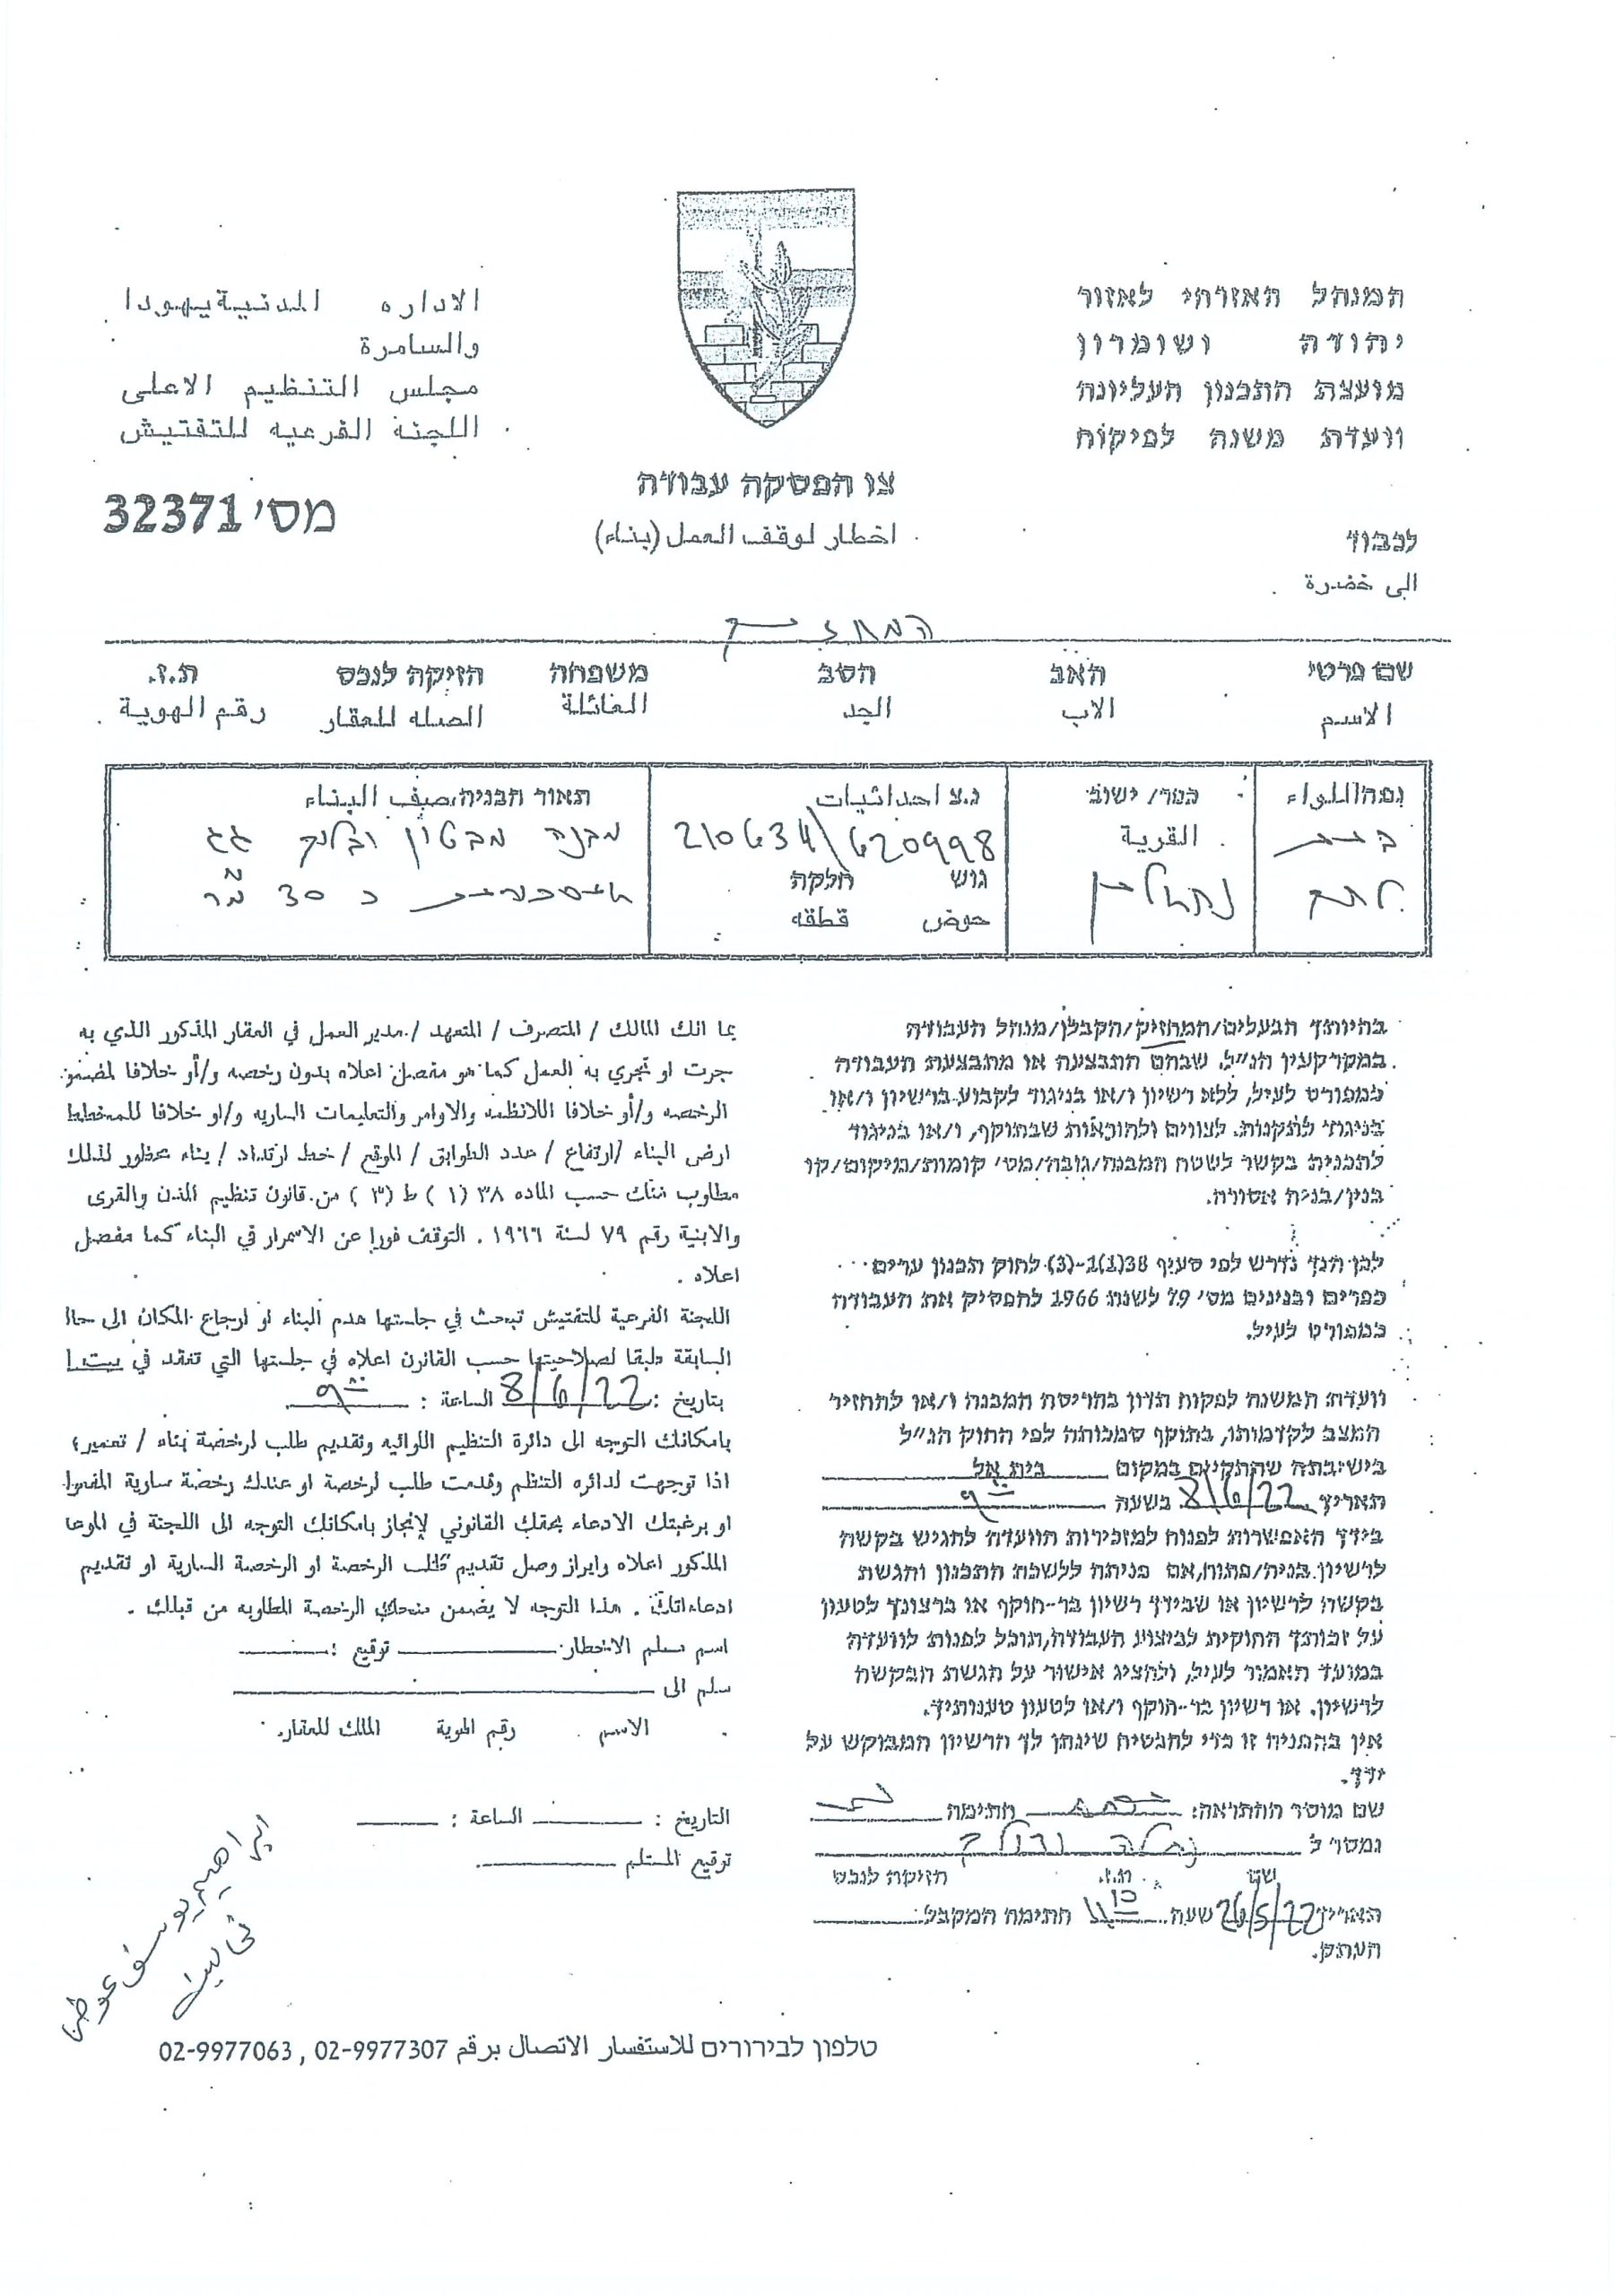 המנהל האזרחי לאזור
יהודה ושומרון
מועצת התכנון העליונה
וועדת משנה לפיקוח
الاداره المدنية يهودا
والسامرة
مجلس التنظيم الاعلى
اللجنة الفرعيه للتفتيش
מס' 32371
צו הפסקה עבודה
اخطار لوقف العمل (بناء)
לכבוד
الى حضرة
המחזיק
שם פרטי האב הסב משפחה הזיקה לנכס ת.ז.
الاسم الاب الجد العائلة الصله للعقار رقم الهوية
נפה اللواء
בית
לחם
כפר/ ישוב
القرية
נחאלין
נ.צ احداثيات
210634/620998
גוש חלקה
حوض قطعه
תאור הבניה، صيف البناء
מבנה מבטון ובלוק גג
כ 30 מ"ר
בהיותך הבעלים/המחזיק/הקבלן/מנהל העבודה
במקרקעין הנ"ל. שבהם התבצעה או מתבצעת העבודה
כמפורט לעיל, ללא רשיון ו/או בניגוד לקבוע ברשיון ו/או
בניגוד לתקנות. לצווים ולהוראות שבתוקף, ו/או בניגוד
לתכנית בקשר לשטח המבנה/גובה/מס' קומות/מיקום/קו
בנין/בניה אסורה.
לכן הנך נדרש לפי סעיף 38(1)1-(3) לחוק תכנון ערים
כפרים ובנינים מס' 79 לשנת 1966 להפסיק את העבודה
כמפורט לעיל.
וועדת המשנה לפקוח תדון בהריסת המבנה ו/או להחזיר
המצב לקדמותו, בתוקף סמכותה לפי החוק הנ"ל
בישיבתה שתתקיים במקום בית אל
תאריך 8/6/22 בשעה 9
בידך האפשרות לפנות למזכירות הוועדה להגיש בקשה
לרשיון בניה/פתוח, אם פניתה ללשכת התכנון והגשת
בקשה לרשיון או שבידך רשיון בר-תוקף או ברצונך לטעון
על זכותך החוקית לביצוע העבודה, תוכל לפנות לוועדה
במועד האמור לעיל, ולהציג אישור על הגשת הבקשה
לרשיון. או רשיון בר-תוקף ו/או לטעון טענותיך.
אין בהפניה זו כדי להבטיח שינתן לך הרשיון המבוקש על
ידך.
שם מוסר ההתראה: חתימה
נמסר ל
שם ת.ז. הזיקה לנכס
תאריך 26/5/22 שעה 11 חתימת המקבל:
העתק.
بما انك المالك / المتصرف / المتعهد / مدير العمل في العقار المذكور الذي به
جرت او تجري به العمل كما هو مفصل اعلاه بدون رخصه و/أو خلافا لمضمون
الرخصه و/أو خلافا اللانظمه والاوامر والتعليمات الساريه و/او خلافا للمخطط
ارض البناء / ارتفاع / عدد الطوابق / الموقع / خط ارتداد / بناء محظور لذلك
مطلوب منك حسب الماده ٣٨ (١) ط (٣) من قانون تنظيم المدن والقرى
والابنية رقم ٧٩ لسنة ١٩٦٦ . التوقف فورا عن الاسمرار في البناء كما مفصل
اعلاه .
اللجنة الفرعية للتفتيش تبحث في جلستها هدم البناء او ارجاع المكان الى حالـ
السابقة طبقا لصلاحيتها حسب القانون اعلاه في جلستها التي تنعقد في بيت ا
بتاريخ : 8/6/22 الساعة : 9
بامكانك التوجه الى دائرة التنظيم اللوائيه وتقديم طلب لرخصة بناء / تعمير؛
اذا توجهت لدائره التنظم وقدمت طلب لرخصة او عندك رخصة سارية المفعول
او برغبتك الادعاء بحقك القانوني لإنجاز بامكانك التوجه الى اللجنة في الموعا
المذكور اعلاه وابراز وصل تقديم طلب الرخصة او الرخصة السارية او تقديم
ادعاءاتك . هذا التوجه لا يضمن منحك الرخصة المطلوبه من قبلك .
اسم مسلم الاخطار: توقيع :
سلم الى
الاسم رقم الهوية المالك للعقار
التاريخ : الساعة :
توقيع المستلم
ابراهيم يوسف عوض
טלפון לבירורים للاستفسار الاتصال برقم 02-9977063 , 02-9977307